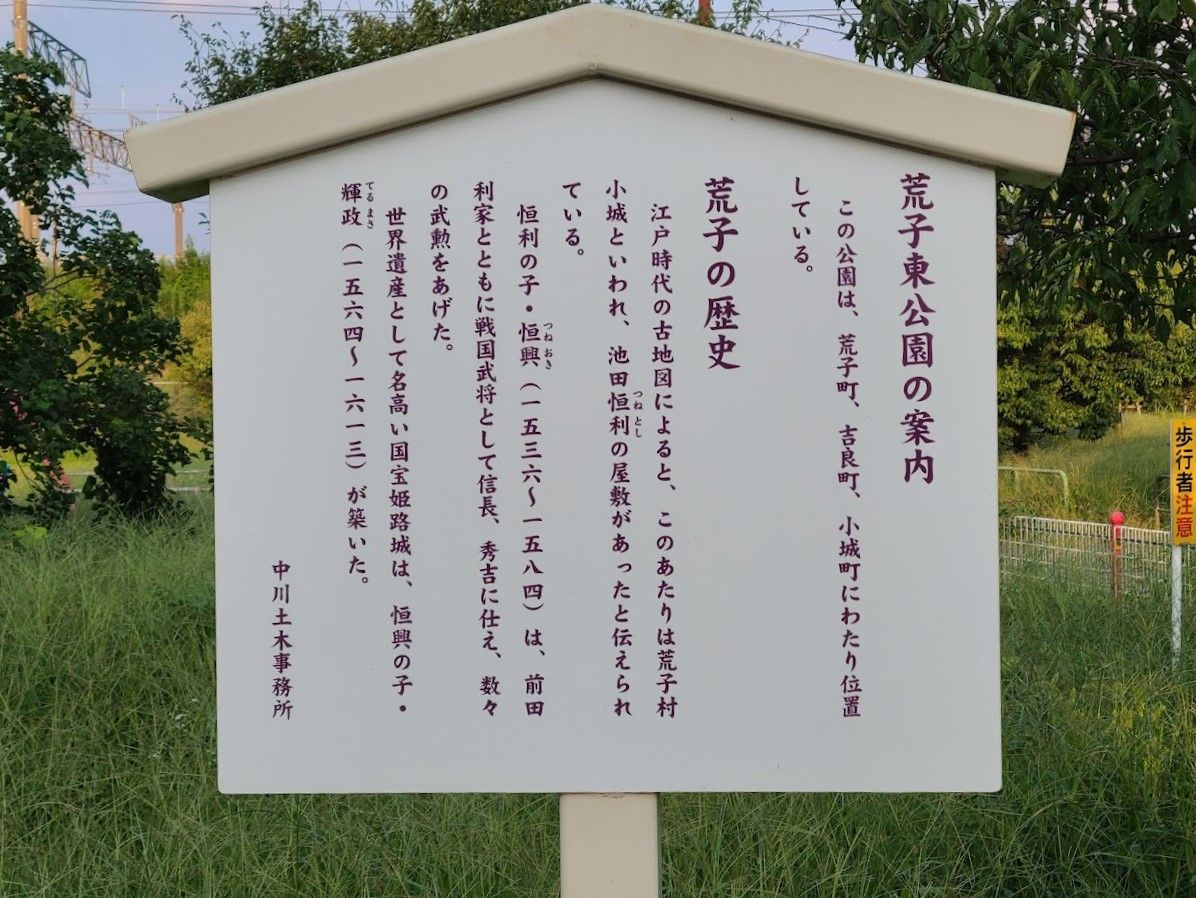 荒子東公園の案内
この公園は、荒子町、吉良町、小城町にわたり位置
している。
荒子の歴史
江戸時代の古地図によると、このあたりは荒子村
小城といわれ、池田恒利の屋敷があったと伝えられ
つねとし
ている。
恒利の子・恒興（一五三六〜一五八四）は、前田
つねおき
利家とともに戦国武将として信長、秀吉に仕え、数々
の武勲をあげた。
世界遺産として名高い国宝姫路城は、恒興の子・
輝政（一五六四〜一六一三）が築いた。
てるまさ
中川土木事務所
歩行者注意